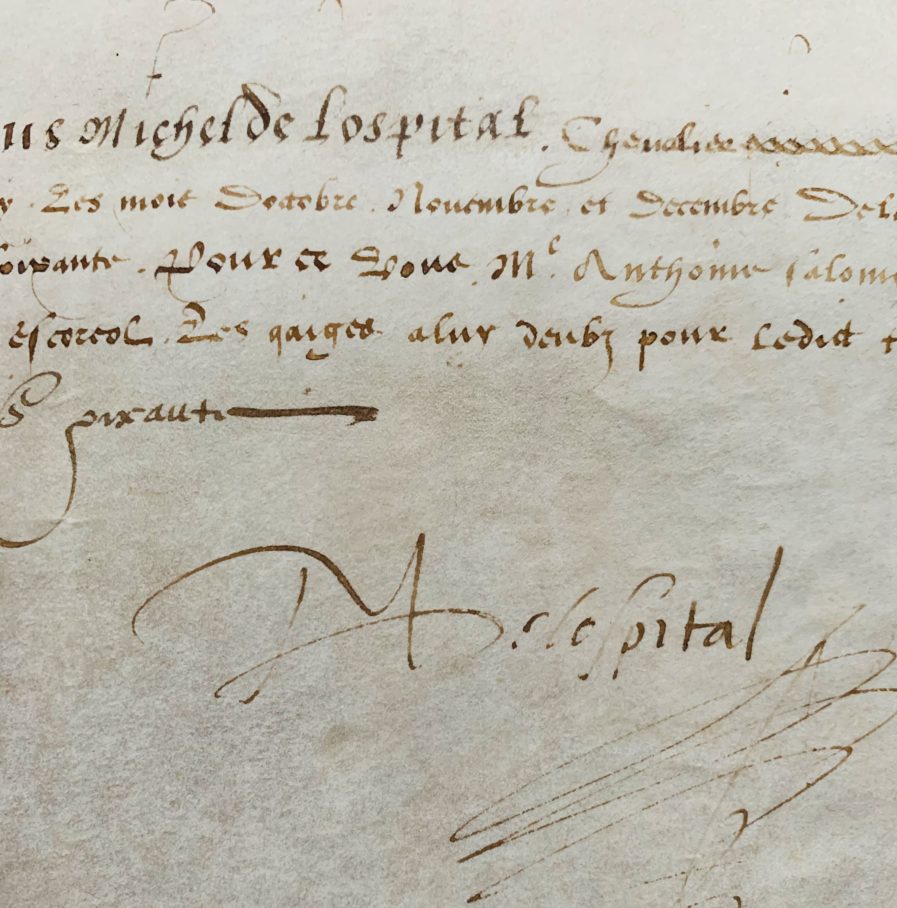 us Michel de Lospital. Chevalier
y. Les mois Doctobre. Novembre. et decembre Dela
soixante. Pour ce Vous. Me. Anthoine Salomo
escoreol. Les gaiges aluy deubz pour ledict t
soixante
M de lospital